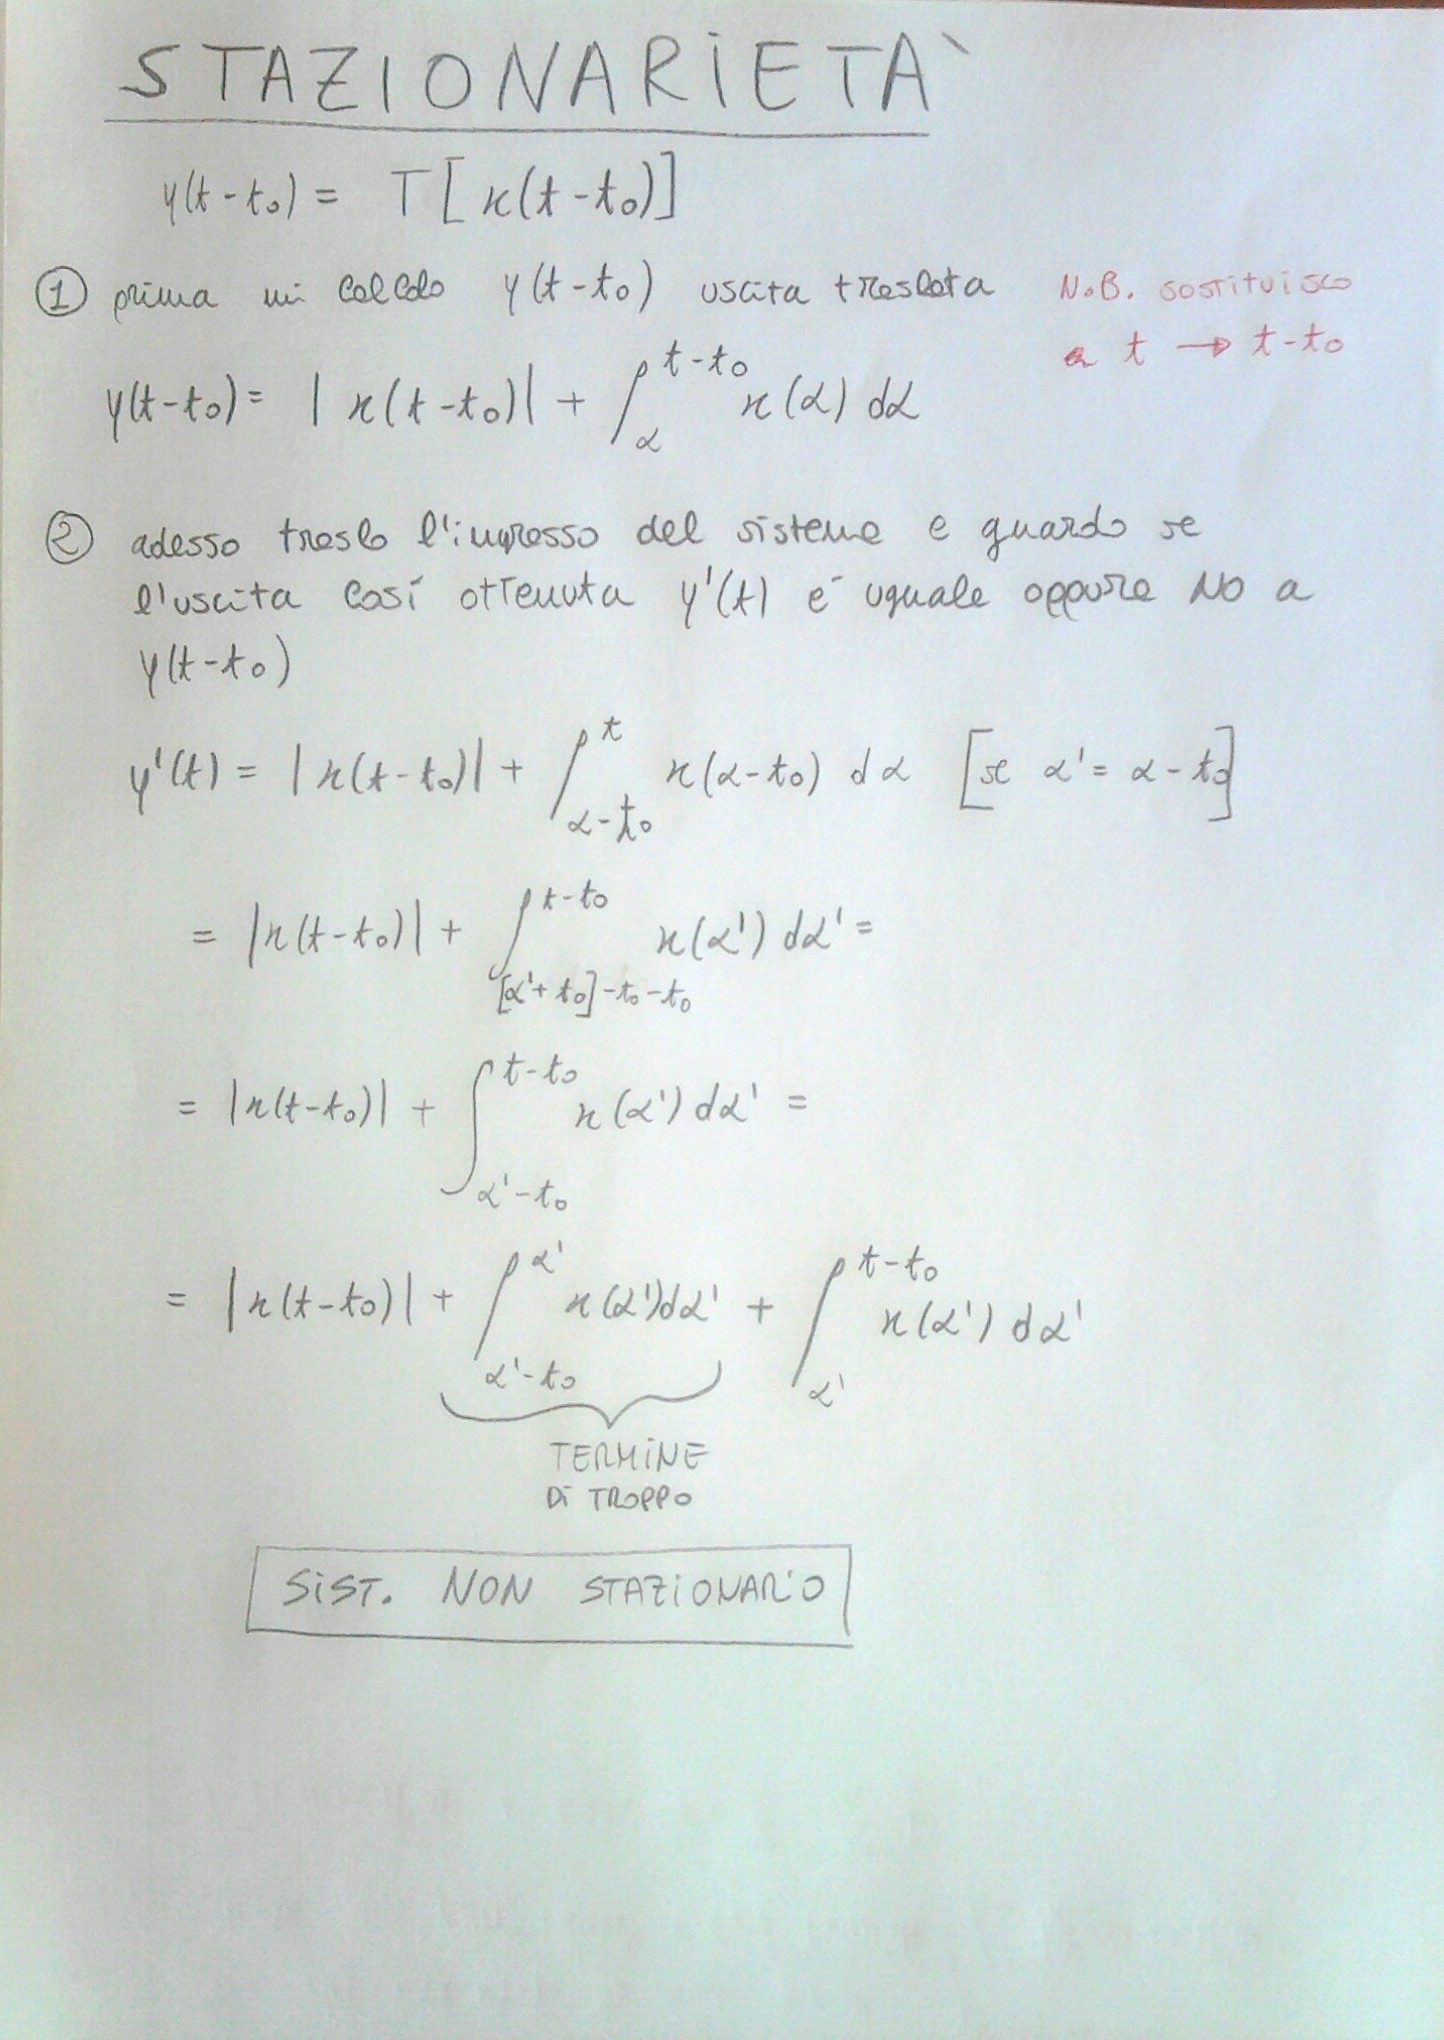 STAZIONARIETÀ
y(t-t₀) = T[x(t-t₀)]
① prima mi calcolo y(t-t₀) uscita traslata
N.B. sostituisco
a t → t-t₀
y(t-t₀) = |x(t-t₀)| + ∫_α^{t-t₀} x(α) dα
② adesso traslo l'ingresso del sistema e guardo se
l'uscita così ottenuta y'(t) è uguale oppure NO a
y(t-t₀)
y'(t) = |x(t-t₀)| + ∫_{α-t₀}^{t} x(α-t₀) dα [se α' = α-t₀]
= |x(t-t₀)| + ∫_{[α'+t₀]-t₀-t₀}^{t-t₀} x(α') dα' =
= |x(t-t₀)| + ∫_{α'-t₀}^{t-t₀} x(α') dα' =
= |x(t-t₀)| + ∫_{α'-t₀}^{α'} x(α')dα' + ∫_{α'}^{t-t₀} x(α') dα'
TERMINE
DI TROPPO
SIST. NON STAZIONARIO